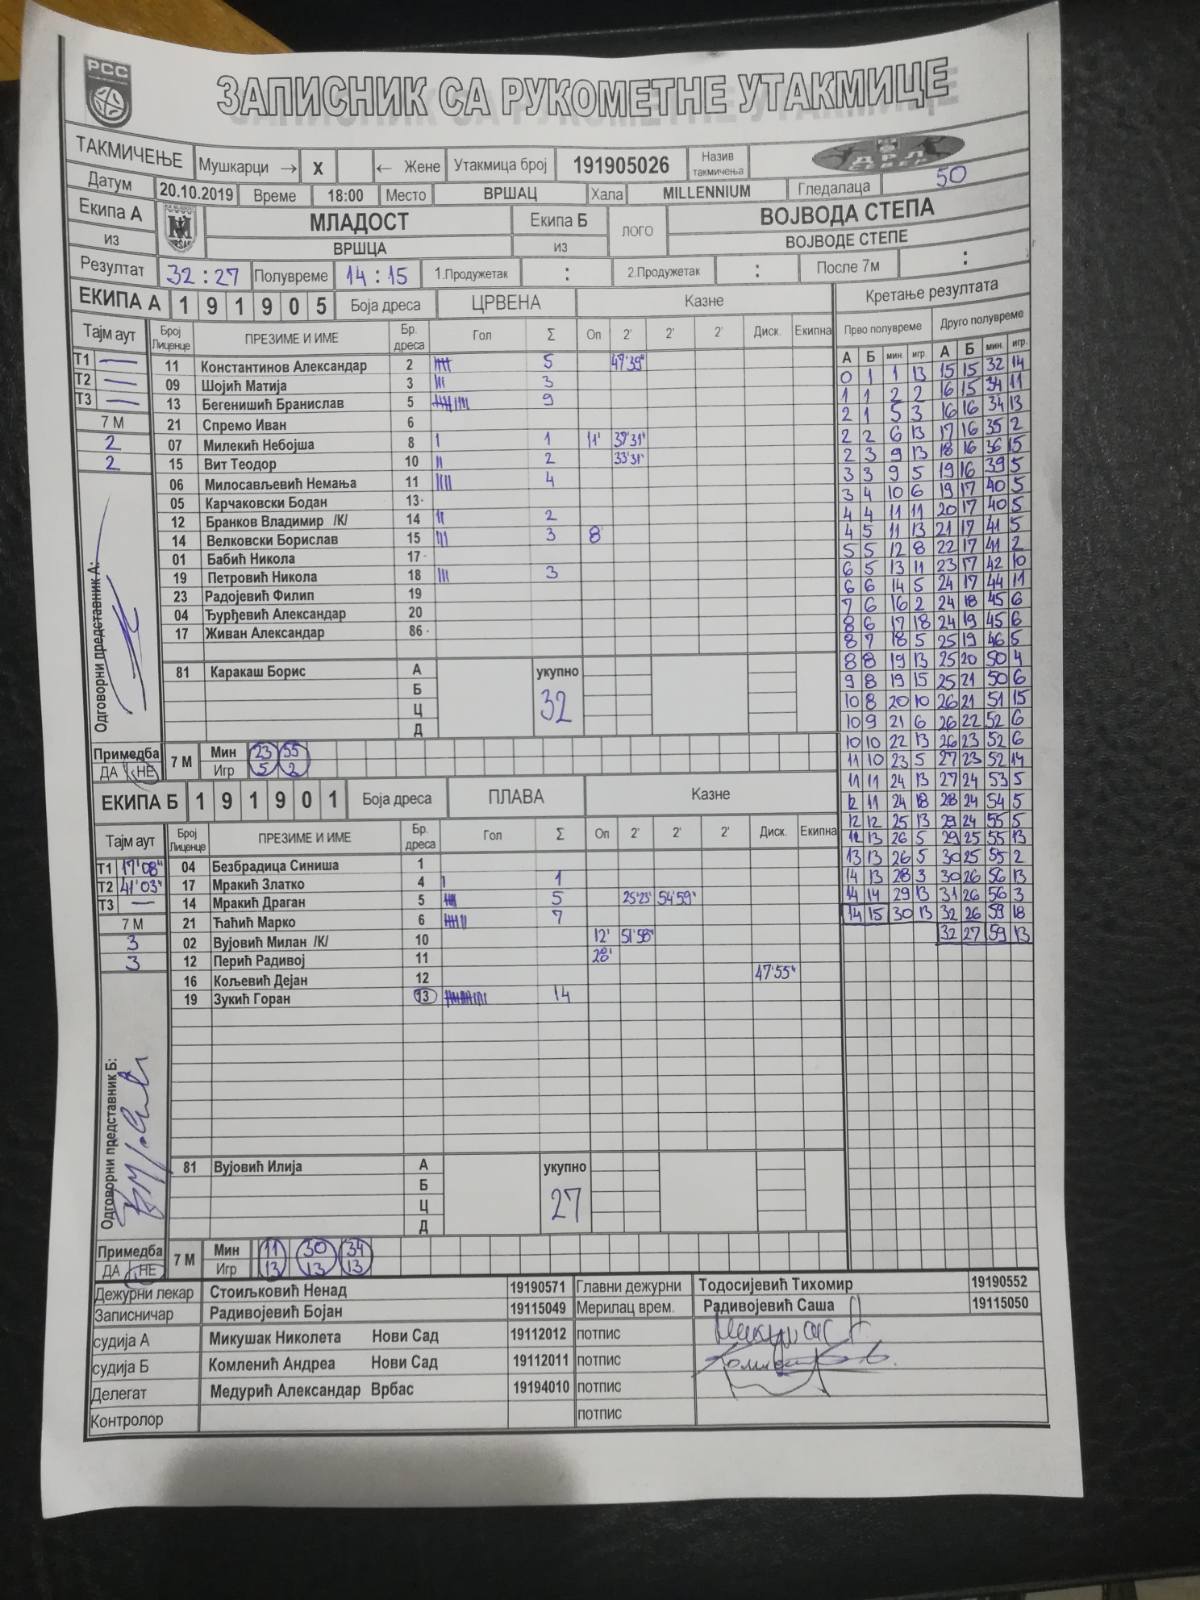 РСС
ЗАПИСНИК СА РУКОМЕТНЕ УТАКМИЦЕ
ТАКМИЧЕЊЕ Мушкарци → X ← Жене Утакмица број 191905026 Назив такмичења
Датум 20.10.2019 Време 18:00 Место ВРШАЦ Хала MILLENNIUM Гледалаца 50
Екипа А МЛАДОСТ Екипа Б ЛОГО ВОЈВОДА СТЕПА
из ВРШЦА из ВОЈВОДЕ СТЕПЕ
Резултат 32 : 27 Полувреме 14 : 15 1.Продужетак : 2.Продужетак : После 7м :
ЕКИПА А 1 9 1 9 0 5 Боја дреса ЦРВЕНА Казне
Тајм аут Број Лиценце ПРЕЗИМЕ И ИМЕ Бр. дреса Гол Σ Оп 2' 2' 2' Диск. Екипна
T1 — 11 Константинов Александар 2 5 47'39"
T2 — 09 Шојић Матија 3 3
T3 — 13 Бегенишић Бранислав 5 9
7 М 21 Спремо Иван 6
2 07 Милекић Небојша 8 1 11' 37'31"
2 15 Вит Теодор 10 2 33'31"
06 Милосављевић Немања 11 4
05 Карчаковски Бодан 13
12 Бранков Владимир /К/ 14 2
14 Велковски Борислав 15 3 8'
01 Бабић Никола 17
19 Петровић Никола 18 3
23 Радојевић Филип 19
04 Ђурђевић Александар 20
17 Живан Александар 86
81 Каракаш Борис А укупно
Б 32
Ц
Д
Одговорни представник А:
Примедба 7 М Мин 23 55
ДА НЕ Игр 5 2
ЕКИПА Б 1 9 1 9 0 1 Боја дреса ПЛАВА Казне
Тајм аут Број Лиценце ПРЕЗИМЕ И ИМЕ Бр. дреса Гол Σ Оп 2' 2' 2' Диск. Екипна
T1 17'08" 04 Безбрадица Синиша 1
T2 41'03" 17 Мракић Златко 4 1
T3 — 14 Мракић Драган 5 5 25'23" 54'59"
7 М 21 Ћаћић Марко 6 7
3 02 Вујовић Милан /К/ 10 12' 51'58"
3 12 Перић Радивој 11 28'
16 Кољевић Дејан 12 47'55"
19 Зукић Горан 13 14
81 Вујовић Илија А укупно
Б 27
Ц
Д
Одговорни представник Б:
Примедба 7 М Мин 11 30 34
ДА НЕ Игр 13 13 13
Кретање резултата
Прво полувреме Друго полувреме
А Б мин. игр. А Б мин. игр.
0 1 1 13 15 15 32 14
1 1 2 2 16 15 34 11
2 1 5 3 16 16 34 13
2 2 6 13 17 16 35 2
2 3 9 13 18 16 36 15
3 3 9 5 19 16 39 5
3 4 10 6 19 17 40 5
4 4 11 11 20 17 40 5
4 5 11 13 21 17 41 5
5 5 12 8 22 17 41 2
6 5 13 11 23 17 42 10
6 6 14 5 24 17 44 11
7 6 16 2 24 18 45 6
8 6 17 18 24 19 45 6
8 7 18 5 25 19 46 5
8 8 19 13 25 20 50 4
9 8 19 15 25 21 50 6
10 8 20 10 26 21 51 15
10 9 21 6 26 22 52 6
10 10 22 13 26 23 52 6
11 10 23 5 27 23 52 14
11 11 24 13 27 24 53 5
12 11 24 18 28 24 54 5
12 12 25 13 29 24 55 5
12 13 26 5 29 25 55 13
13 13 26 5 30 25 55 2
14 13 28 3 30 26 56 13
14 14 29 13 31 26 56 3
14 15 30 13 32 26 59 18
32 27 59 13
Дежурни лекар Стоиљковић Ненад 19190571 Главни дежурни Тодосијевић Тихомир 19190552
Записничар Радивојевић Бојан 19115049 Мерилац врем. Радивојевић Саша 19115050
судија А Микушак Николета Нови Сад 19112012 потпис
судија Б Комленић Андреа Нови Сад 19112011 потпис
Делегат Медурић Александар Врбас 19194010 потпис
Контролор потпис